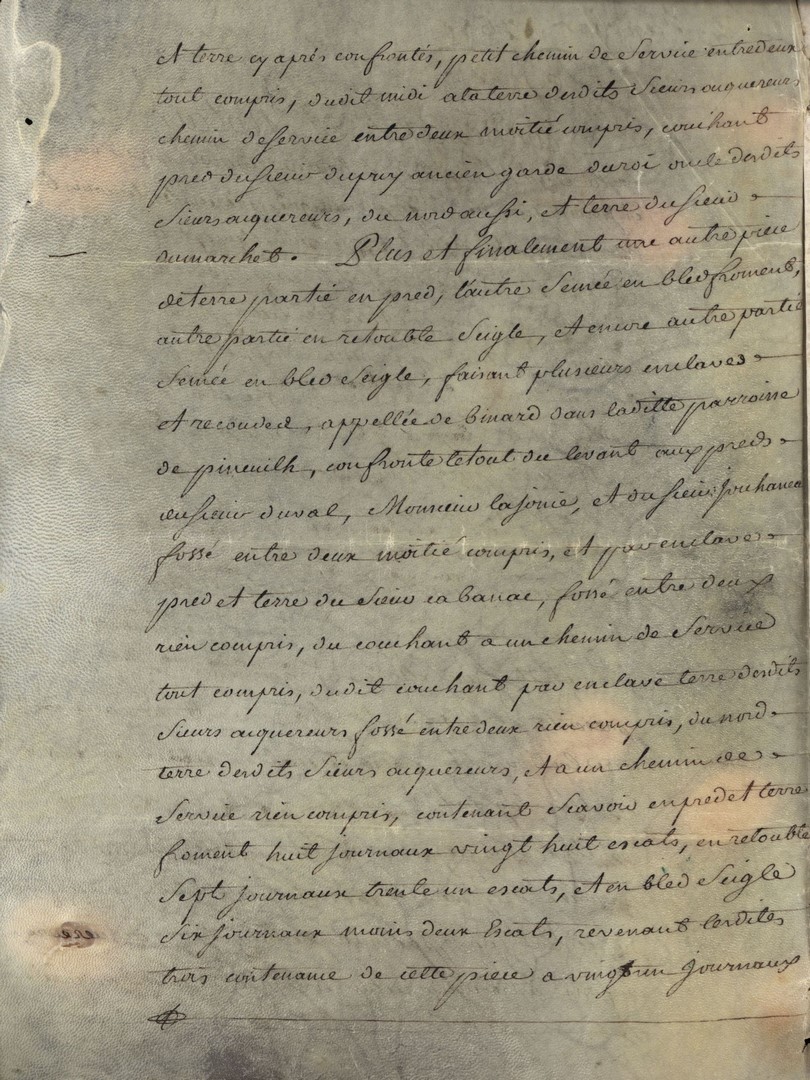 et terre cy aprés confrontés, petit chemin de Service entredeux
tout compris, dudit midi a la terre desdits Sieurs acquereurs
chemin de Service entre deux moitié compris, couchant
pred du Sieur dupuy ancien garde du roi ou le desdits
Sieurs acquereurs, du nord aussi, et terre du Sieur
dumarchet. Plus et finalement une autre piéce
de terre partie en pred, l'autre Semée en bled froment,
autre partie en retouble Seigle, et encore autre partie
Semée en bled Seigle, faisant plusieurs enclaves
et recoudes, appellée de binard dans la ditte parroisse
de pineuilh, confronte le tout du levant aux preds
du Sieur duval, Monsieur lajonie, et du Sieur Jouhaneau
fossé entre deux moitié compris, et par enclave
pred et terre du Sieur cabanac, fossé entre deux
rien compris, du couchant a un chemin de Service
tout compris, dudit couchant par enclave terre desdits
Sieurs acquereurs fossé entre deux rien compris, du nord
terre desdits Sieurs acquereurs, et a un chemin de
Service rien compris, contenant Scavoir en pred et terre
froment huit journaux vingt huit escats, en retouble
Sept journaux trente un escats, et en bled Seigle
Six journaux moins deux Escats, revenant lesdites
trois contenance de cette piece a vingt un journaux